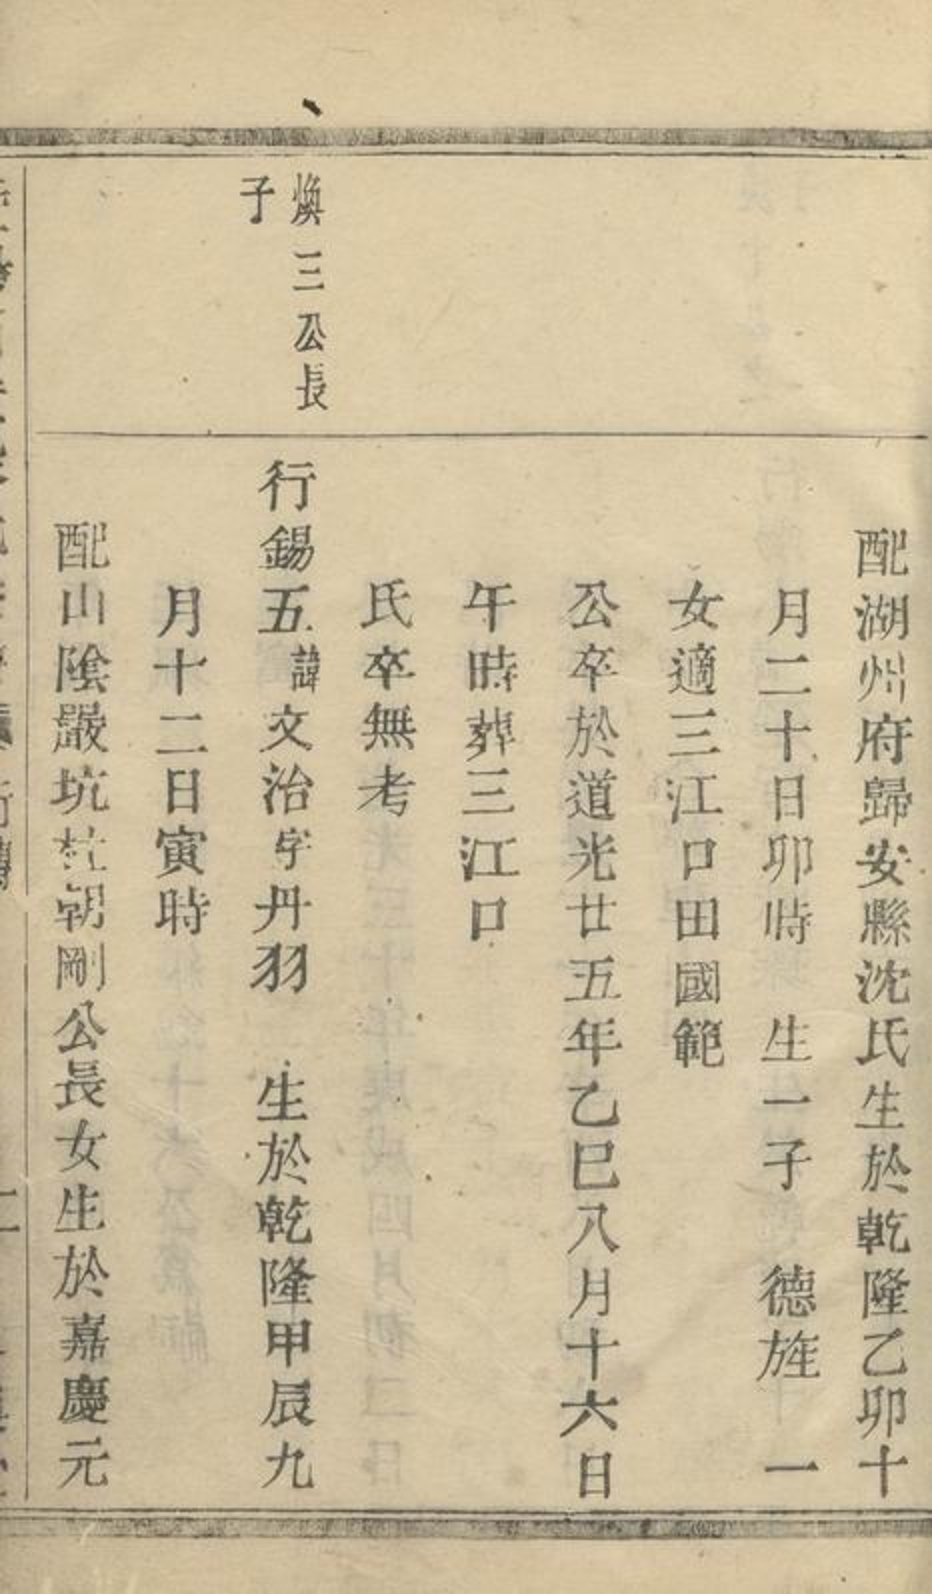 配湖州府歸安縣沈氏生於乾隆乙卯十
月二十日卯時　生一子　德旌　一
女適三江口田國範
公卒於道光廿五年乙巳八月十六日
午時葬三江口
氏卒無考
煥三公長
子
行錫五諱文治字丹羽　生於乾隆甲辰九
月十二日寅時
配山陰嚴坑杜朝剛公長女生於嘉慶元